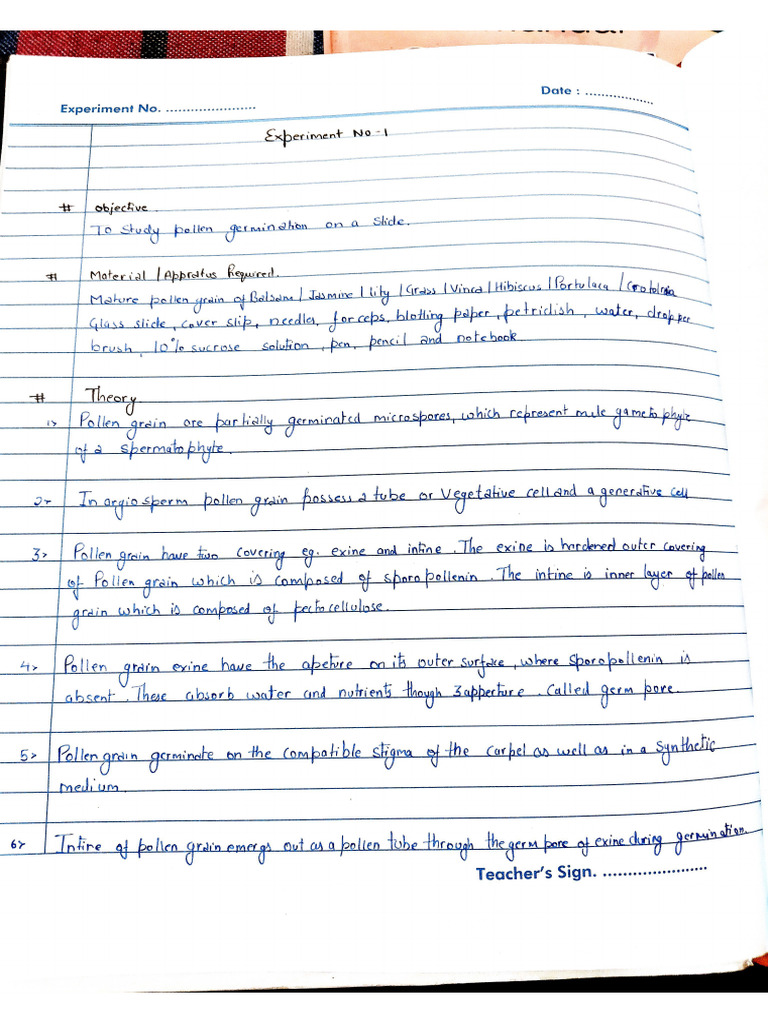 Date : ..................
Experiment No. ......................
Experiment No-1
# Objective
To study pollen germination on a slide.
# Material / Appratus Required.
Mature pollen grain of Balsane / Jasmine / lity / Grass / Vinca / Hibiscus / Portulaca /
Glass slide, cover slip, needles, forceps, blotting paper, petridish, water, dropper
brush, 10% sucrose solution, pen, pencil and notebook
# Theory
1> Pollen grain are partially germinated microspores, which represent male gametophyte
of a spermatophyte.
2> In angiosperm pollen grain possess a tube or Vegetative cell and a generative cell
3> Pollen grain have two covering eg. exine and intine. The exine is hardened outer covering
of Pollen grain which is composed of sporopollenin. The intine is inner layer of pollen
grain which is composed of pectocellulose.
4> Pollen grain exine have the apeture on its outer surface, where sporopollenin is
absent. These absorb water and nutrients though 3 apperture. Called germ pore.
5> Pollen grain germinate on the compatible stigma of the carpel as well as in a synthetic
medium.
6> Intine of pollen grain emergs out as a pollen tube through the germ pore of exine during germination.
Teacher's Sign. ......................